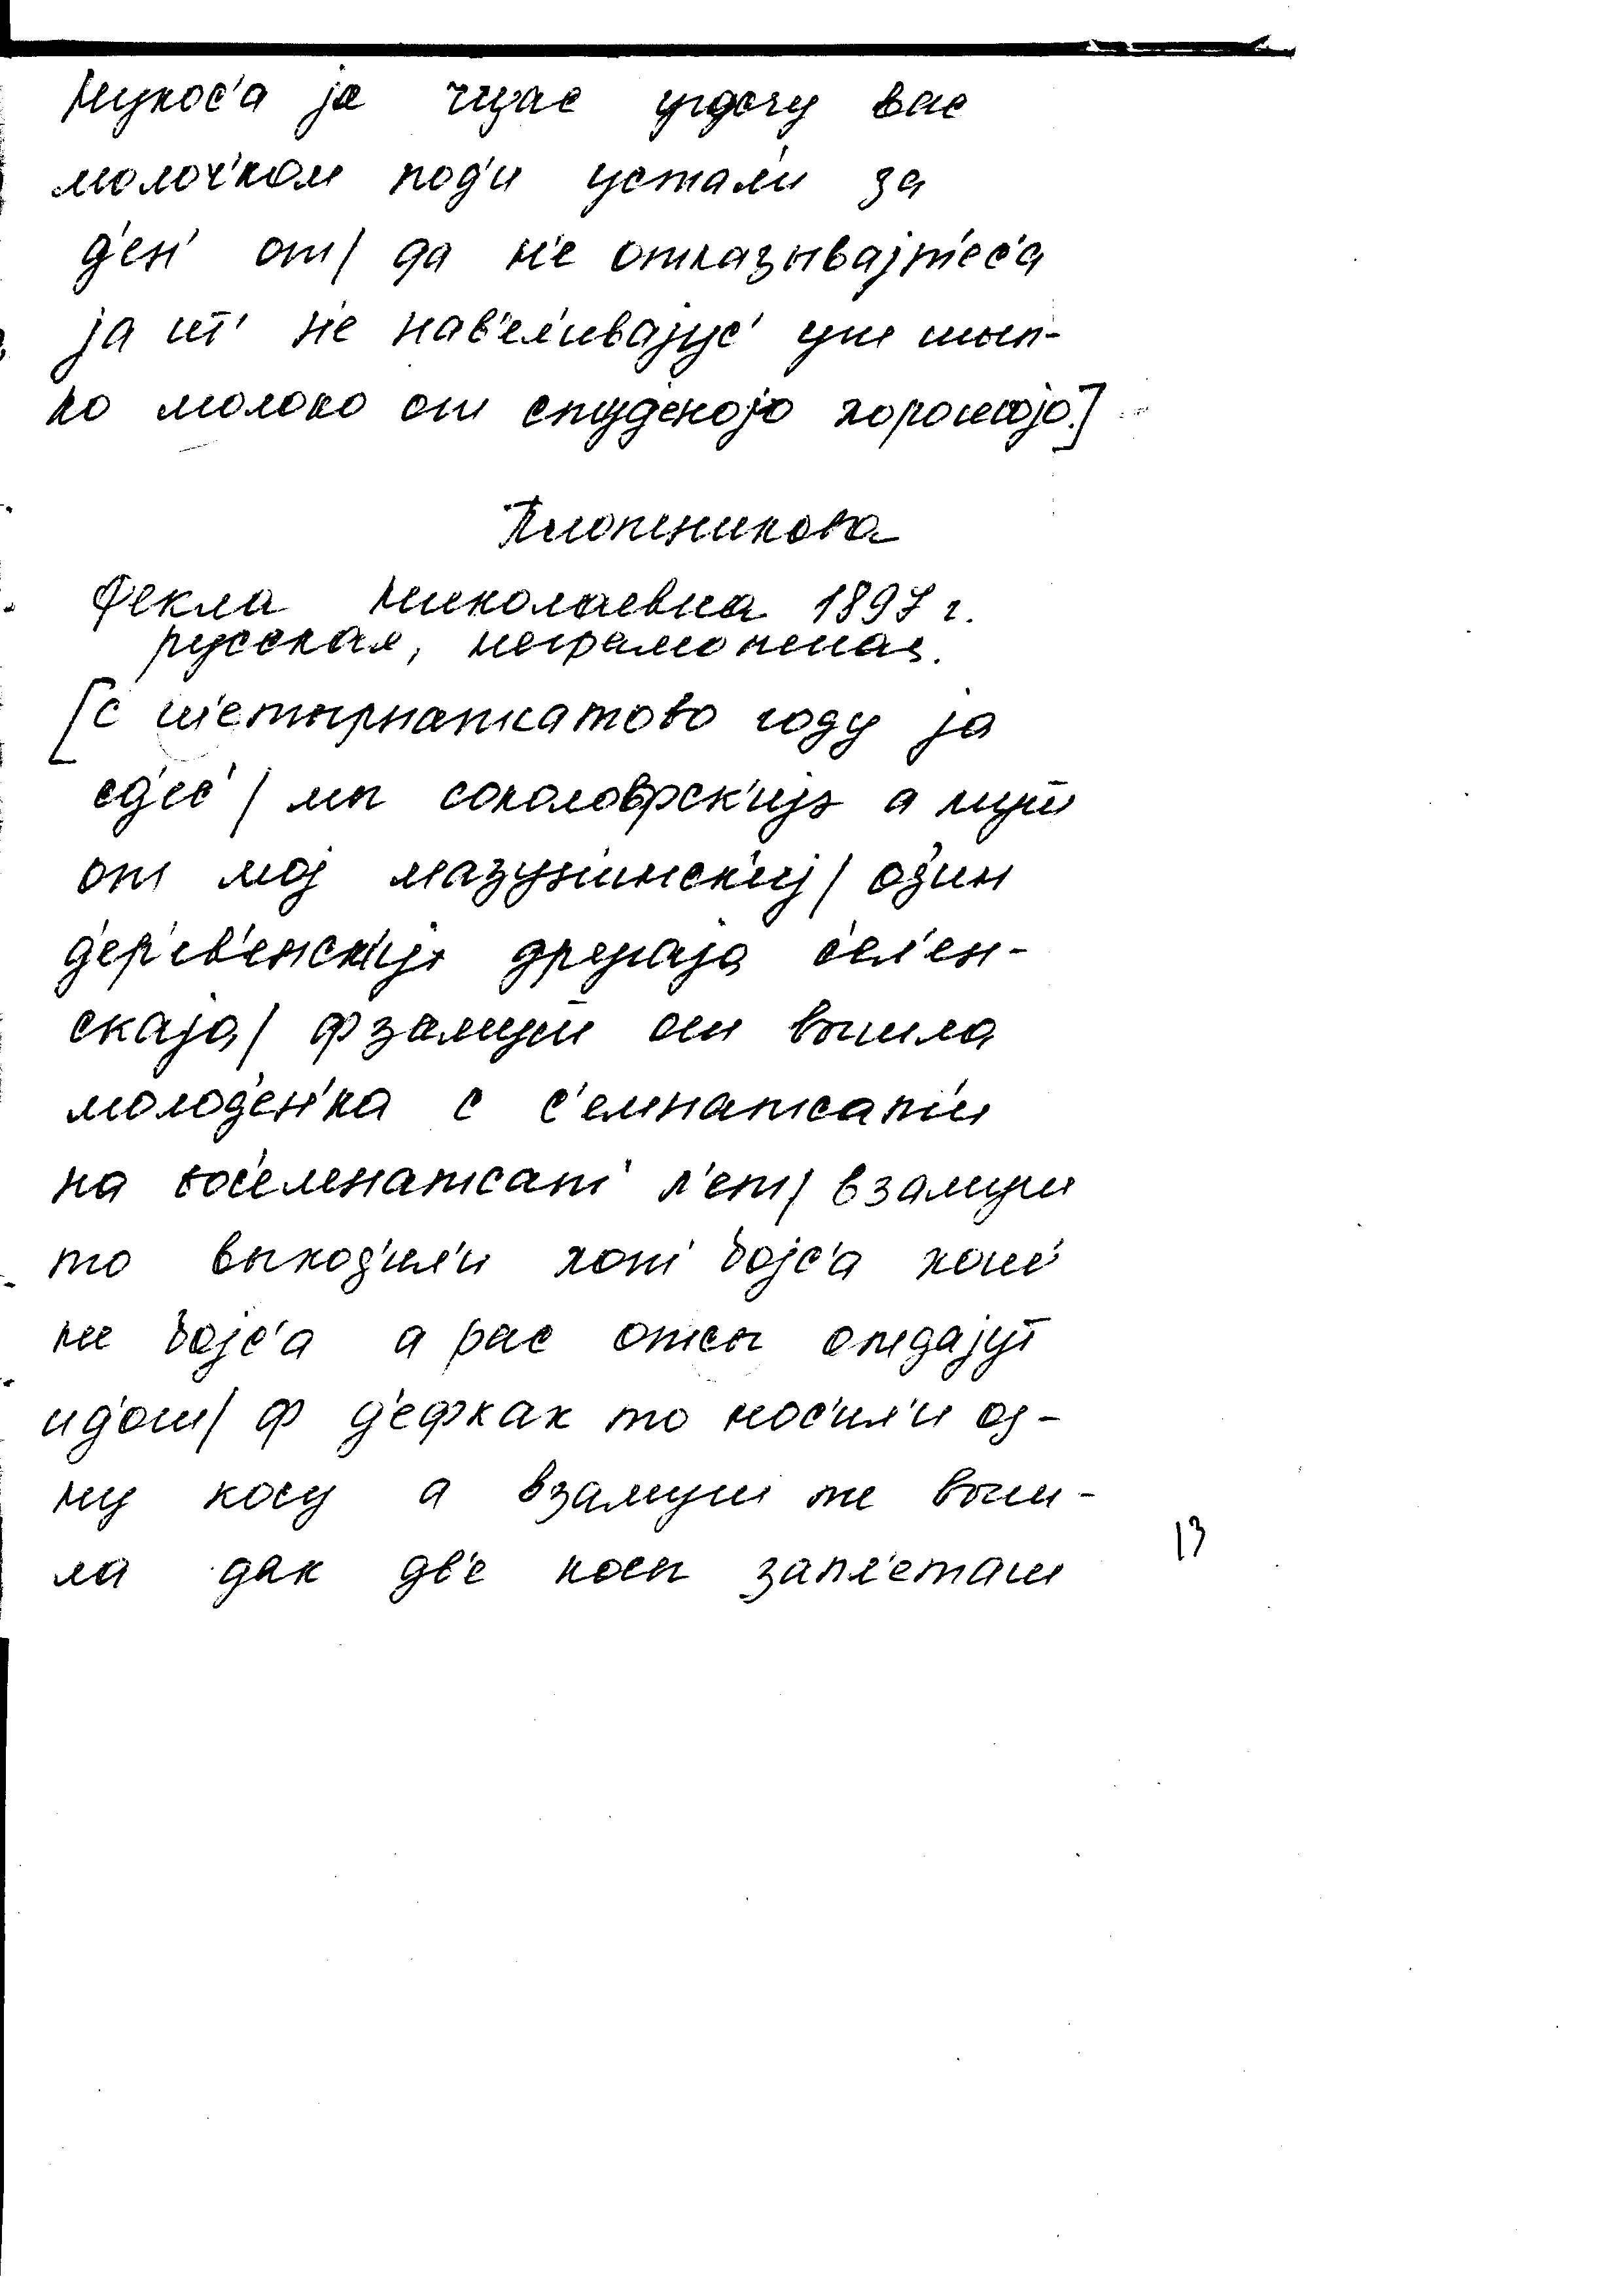 нукос'а jа чцас угдочу вас
молоч'ком под'и устал'и за
д'ен' от/ да н'е отказывајт'ес'а
jа ит' н'е нав'ел'иваjус' уш шып-
ко молоко от студеноjо хорошоjо.]
Фекла Николаевна 1897 г.
русская, неграмотная.
[с ш'етырнатсатово году jа
сд'ес' / мы соколовск'иjэ а муш
от моj мазун'инск'иj / од'ин
д'ер'ев'енск'иj другаjа с'ел'ен-
скаjа / ф замуш от вышла
молод'ен'ка с с'емнатсат'и
на вос'емнатсат' л'ет / в замуш
то выход'ил'и хот' боjс'а хот'
не боjс'а а рас отсы отдаjут
ид'ош / ф д'ефках то нос'ил'и од-
ну косу а взамуш то выш-
ла дак дв'е косы запл'еташ
13